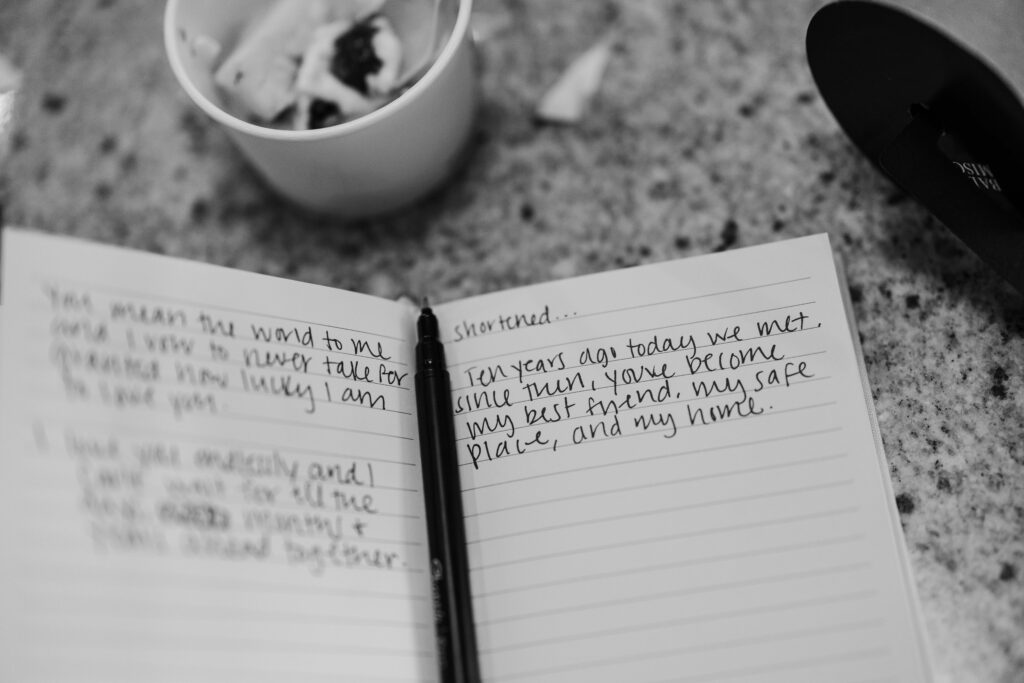 You mean the world to me
and I vow to never take for
granted how lucky I am
to love you.
I love you endlessly and I
can't wait for all the
months +
years ahead together.
shortened...
Ten years ago today we met.
since then, you've become
my best friend, my safe
place, and my home.
BAL
MISC